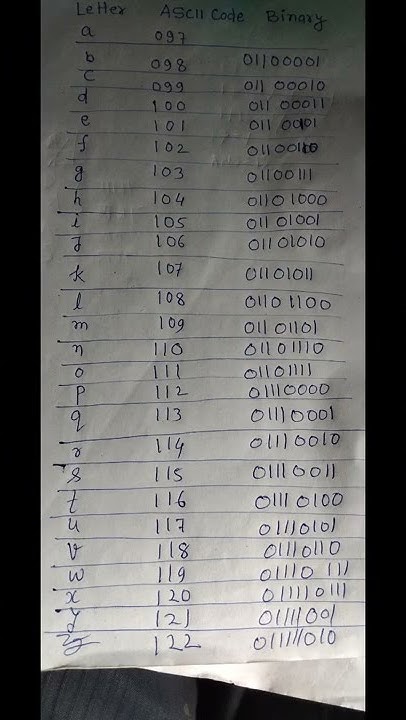 Letter ASCII Code Binary
a 097
b 098 01100001
c 099 011 00010
d 100 011 00011
e 101 011 0001
f 102 01100110
g 103 01100111
h 104 01101000
i 105 011 01001
j 106 011 01010
k 107 01101011
l 108 0110 1100
m 109 0110 1101
n 110 0110 1110
o 111 01101111
p 112 01110000
q 113 0111 0001
r 114 01110010
s 115 0111 0011
t 116 0111 0100
u 117 01110101
v 118 01110110
w 119 01110 111
x 120 011110111
y 121 01111001
z 122 01111010